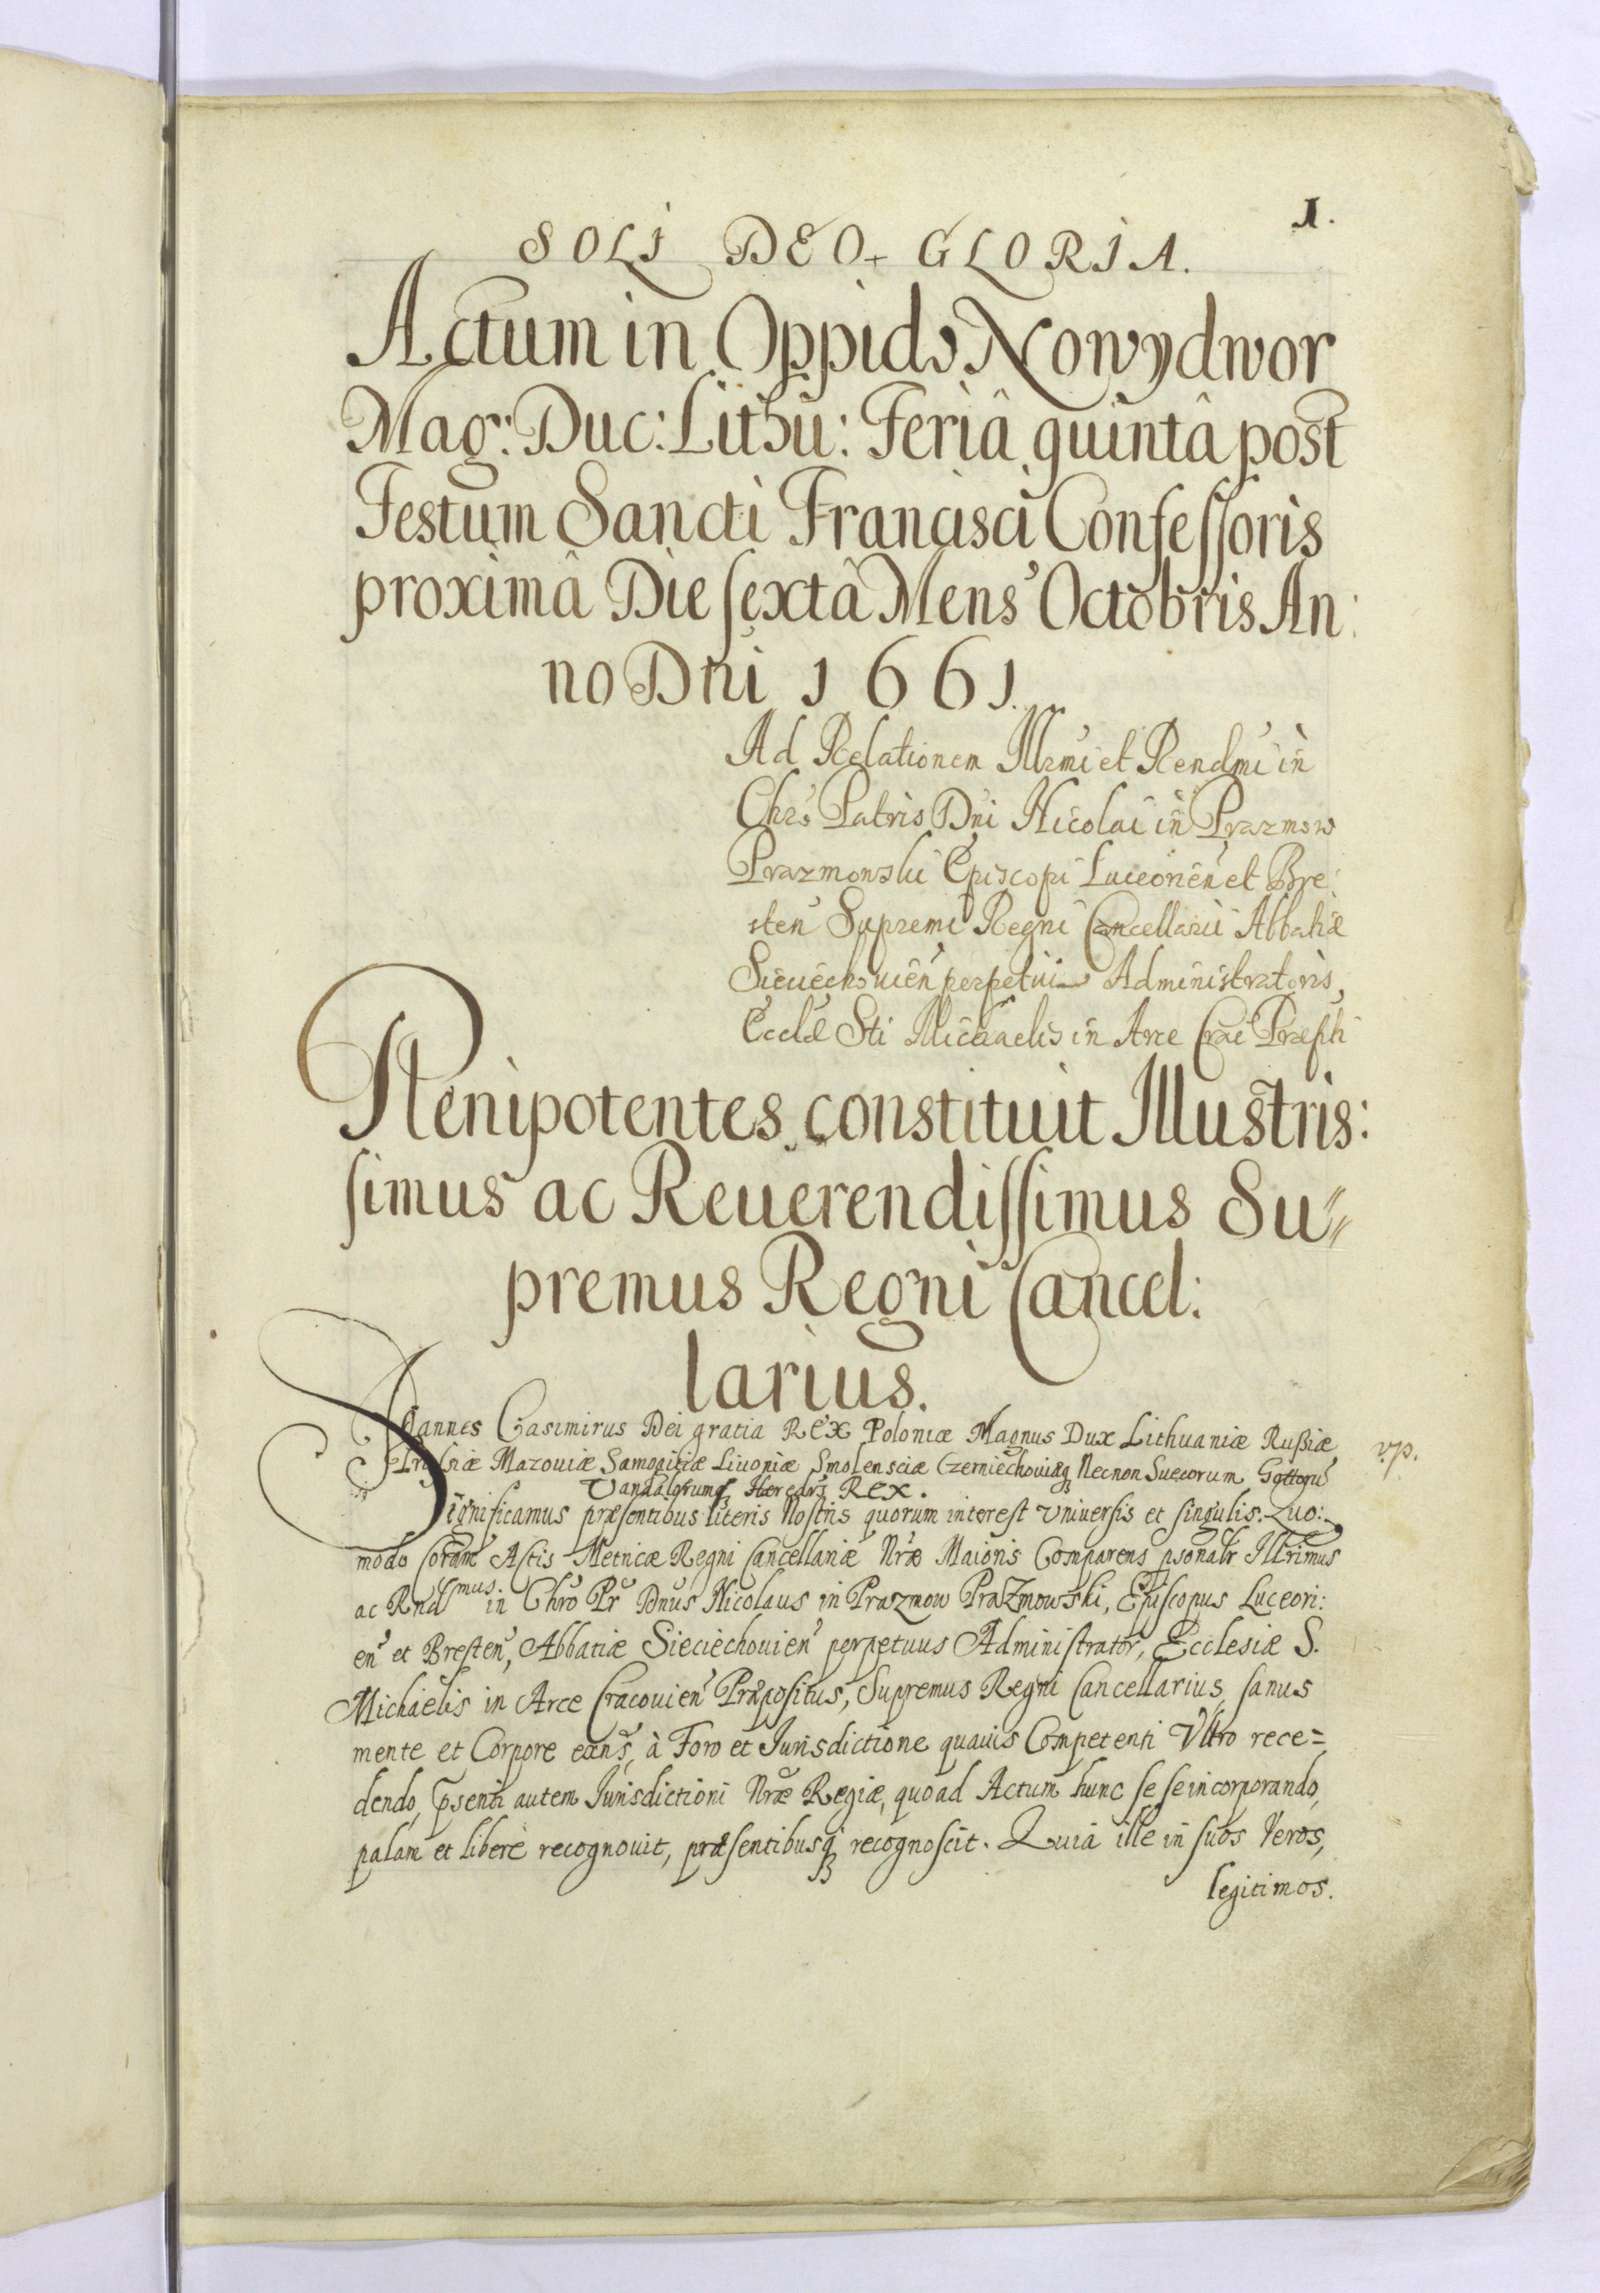 1.
SOLI DEO GLORIA.
Actum in Oppido Nowydwor
Mag: Duc: Lithu: Feriâ quintâ post
Festum Sancti Francisci Confessoris
proximâ Die sextâ Mens' Octobris An:
no Dni 1661.
Ad Relationem Illrmi et Rendmi in
Chro Patris Dni Nicolai in Prazmow
Prazmowski Episcopi Luceorien et Bre:
sten Supremi Regni Cancellarii Abbatiæ
Sieciechouien perpetui Administratoris,
Ecclæ Sti Michaelis in Arce Crac Præpti
Plenipotentes constituit Illustris:
simus ac Reuerendissimus Su"
premus Regni Cancel:
larius.
Joannes Casimirus Dei gratia REX Poloniæ Magnus Dux Lithuaniæ Rußiæ
Prussiæ Mazouiæ Samogitiæ Liuoniæ Smolensciæ Czerniechouiæq Necnon Suecorum Gottorũ
Vandalorumq Hæredrs REX.
Significamus præsentibus literis Nostris quorum interest Vniuersis et singulis. Quo:
modo Coram Actis Metricæ Regni Cancellariæ Nræ Maioris Comparens psonalr Illrimus
ac Rndmus in Chro Pr Dnus Nicolaus in Prazmow Prazmowski, Episcopus Luceori:
en et Bresten, Abbatiæ Sieciechouien perpetuus Administrator, Ecclesiæ S.
Michaelis in Arce Cracouien Præpositus, Supremus Regni Cancellarius, sanus
mente et Corpore exns, à Foro et Jurisdictione quauis Competenti Vltro rece=
dendo, psenti autem Jurisdictioni Nræ Regiæ, quoad Actum hunc se seincorporando,
palam et liberè recognouit, præsentibusq recognoscit. Quia ille in suos Veros,
legitimos.